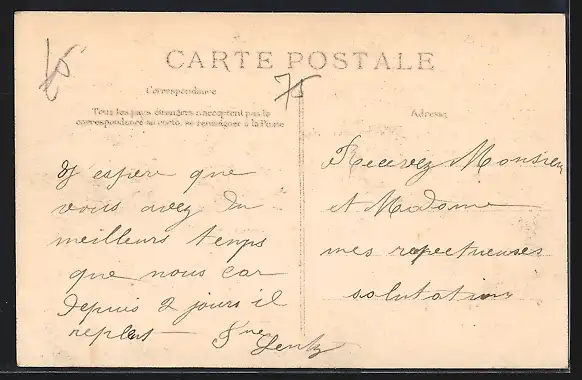 CARTE POSTALE
75
Correspondance
Tous les pays étrangers n'acceptent pas la
correspondance au recto, se renseigner à la Poste
Adresse
J espere que
vous avez du
meilleurs temps
que nous car
depuis 2 jours il
repleut —
Recevez Monsieur
et Madame
mes repectueuses
salutations